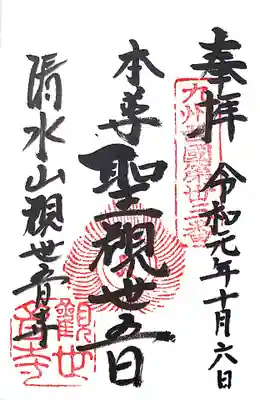 奉拝 令和元年十月六日
九州西國第卅三番
本尊
聖観世音
清水山観世音寺
觀世音寺